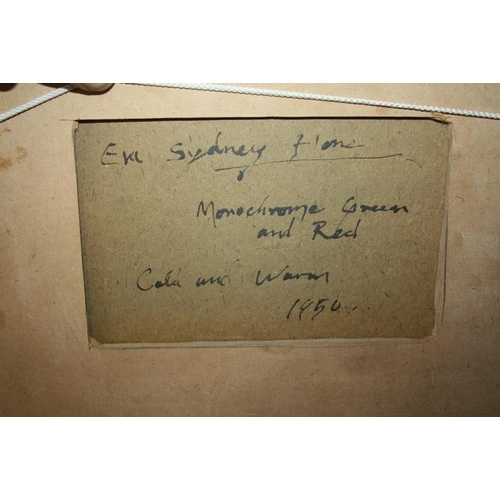 Eva Sydney Hone
Monochrome Green
and Red
Cold and Warm
1950